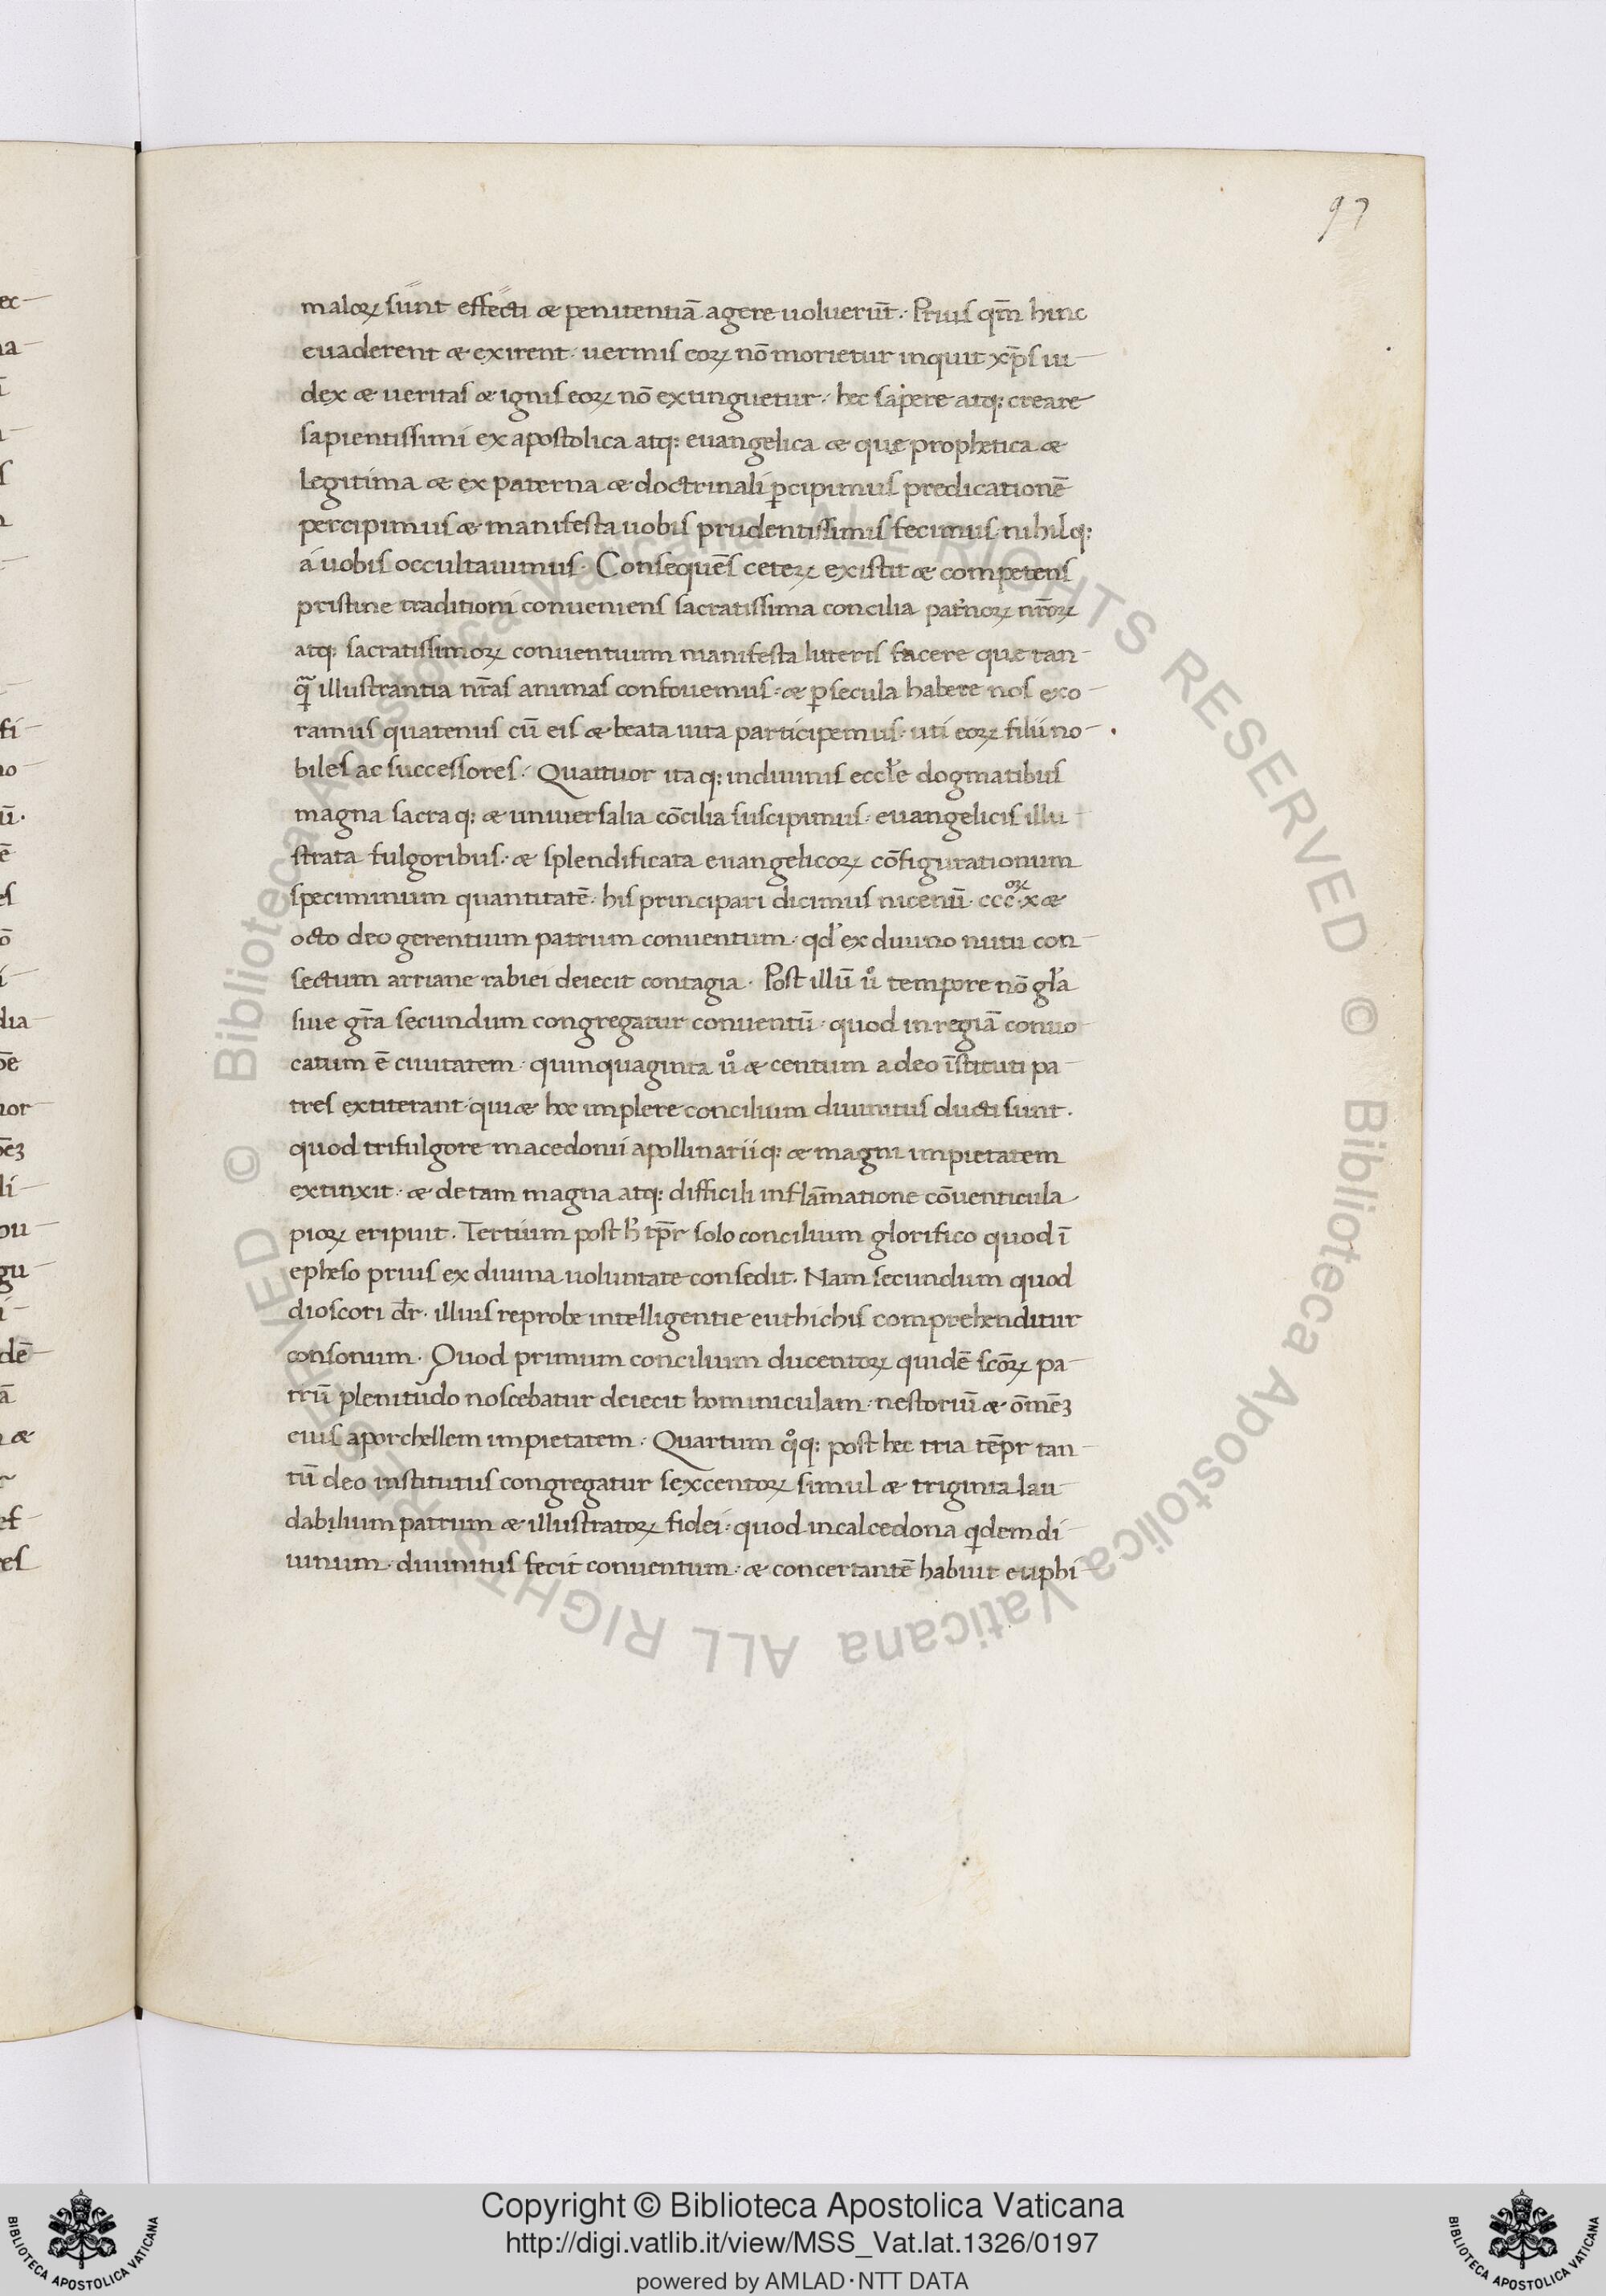 97
maloꝝ sunt effecti æ penitentiā agere uoluerūt. Prius qm̄ hinc
euaderent æ exirent. uermis eoꝝ nō morietur inquit xp̄s iu
dex æ ueritas æ ignis eoꝝ nō extinguetur. hec sapere atq: creare
sapientissimi ex apostolica atq: euangelica æ que prophetica æ
legitima æ ex paterna æ doctrinali ꝑcipimus predicationē
percipimus æ manifesta uobis prudentissimis fecimus nihilq:
a uobis occultauimus. Consequēs ceteꝝ existit æ competens
pristine traditioni conueniens sacratissima concilia pat'noꝝ nr̄oꝝ
atq: sacratissimoꝝ conuentium manifesta litteris facere que tan
q̄ illustrantia nr̄as animas confouemus. æ ꝑ secula habere nos exo
ramus quatenus cū eis æ beata uita participemus. uti eoꝝ filii no
biles ac successores. Quattuor itaq: in diuinis eccl'e dogmatibus
magna sacraq: æ uniuersalia cōcilia suscipimus. euangelicis illu
strata fulgoribus. æ splendificata euangelicoꝝ cōfigurationum
speciminum quantitatē. his principari dicimus nicenū. ccc.oꝝ x æ
octo deo gerentium patrum conuentum. qd' ex diuino nutu con
sectum arriane rabiei deiecit contagia. Post illū u° tempore nō gl'a
siue gr̄a secundum congregatur conuentū. quod in regiā conuo
catum ē ciuitatem. quinquaginta u° æ centum a deo īstituti pa
tres extiterant. qui æ hoc implere concilium diuinitus ducti sunt.
quod trifulgore macedonii apollinariiq: æ magni impietatem
extinxit. æ de tam magna atq: difficili inflāmatione cōuenticula
pioꝝ eripuit. Tertium post h' tp̄r solo concilium glorifico quod ī
epheso prius ex diuina uoluntate consedit. Nam secundum quod
dioscori dr̄. illius reprobe intelligentie euthichis comprehenditur
consonum. Quod primum concilium ducentoꝝ quidē scōꝝ pa
trū plenitudo noscebatur deiecit hominiculam. nestoriū æ ōmēꝫ
eius aporchellem impietatem. Quartum q°q: post hec tria tēpr tan
tū deo institutus congregatur sexcentoꝝ simul æ triginta lau
dabilium patrum æ illustratoꝝ fidei. quod in calcedona qdem di
uinum. diuinitus fecit conuentum. æ concertantē habuit euphi
Copyright © Biblioteca Apostolica Vaticana
http://digi.vatlib.it/view/MSS_Vat.lat.1326/0197
powered by AMLAD·NTT DATA
BIBLIOTECA APOSTOLICA VATICANA
BIBLIOTECA APOSTOLICA VATICANA
© Biblioteca Apostolica Vaticana ALL RIGHTS RESERVED © Biblioteca Apostolica Vaticana ALL RIGHTS RESERVED